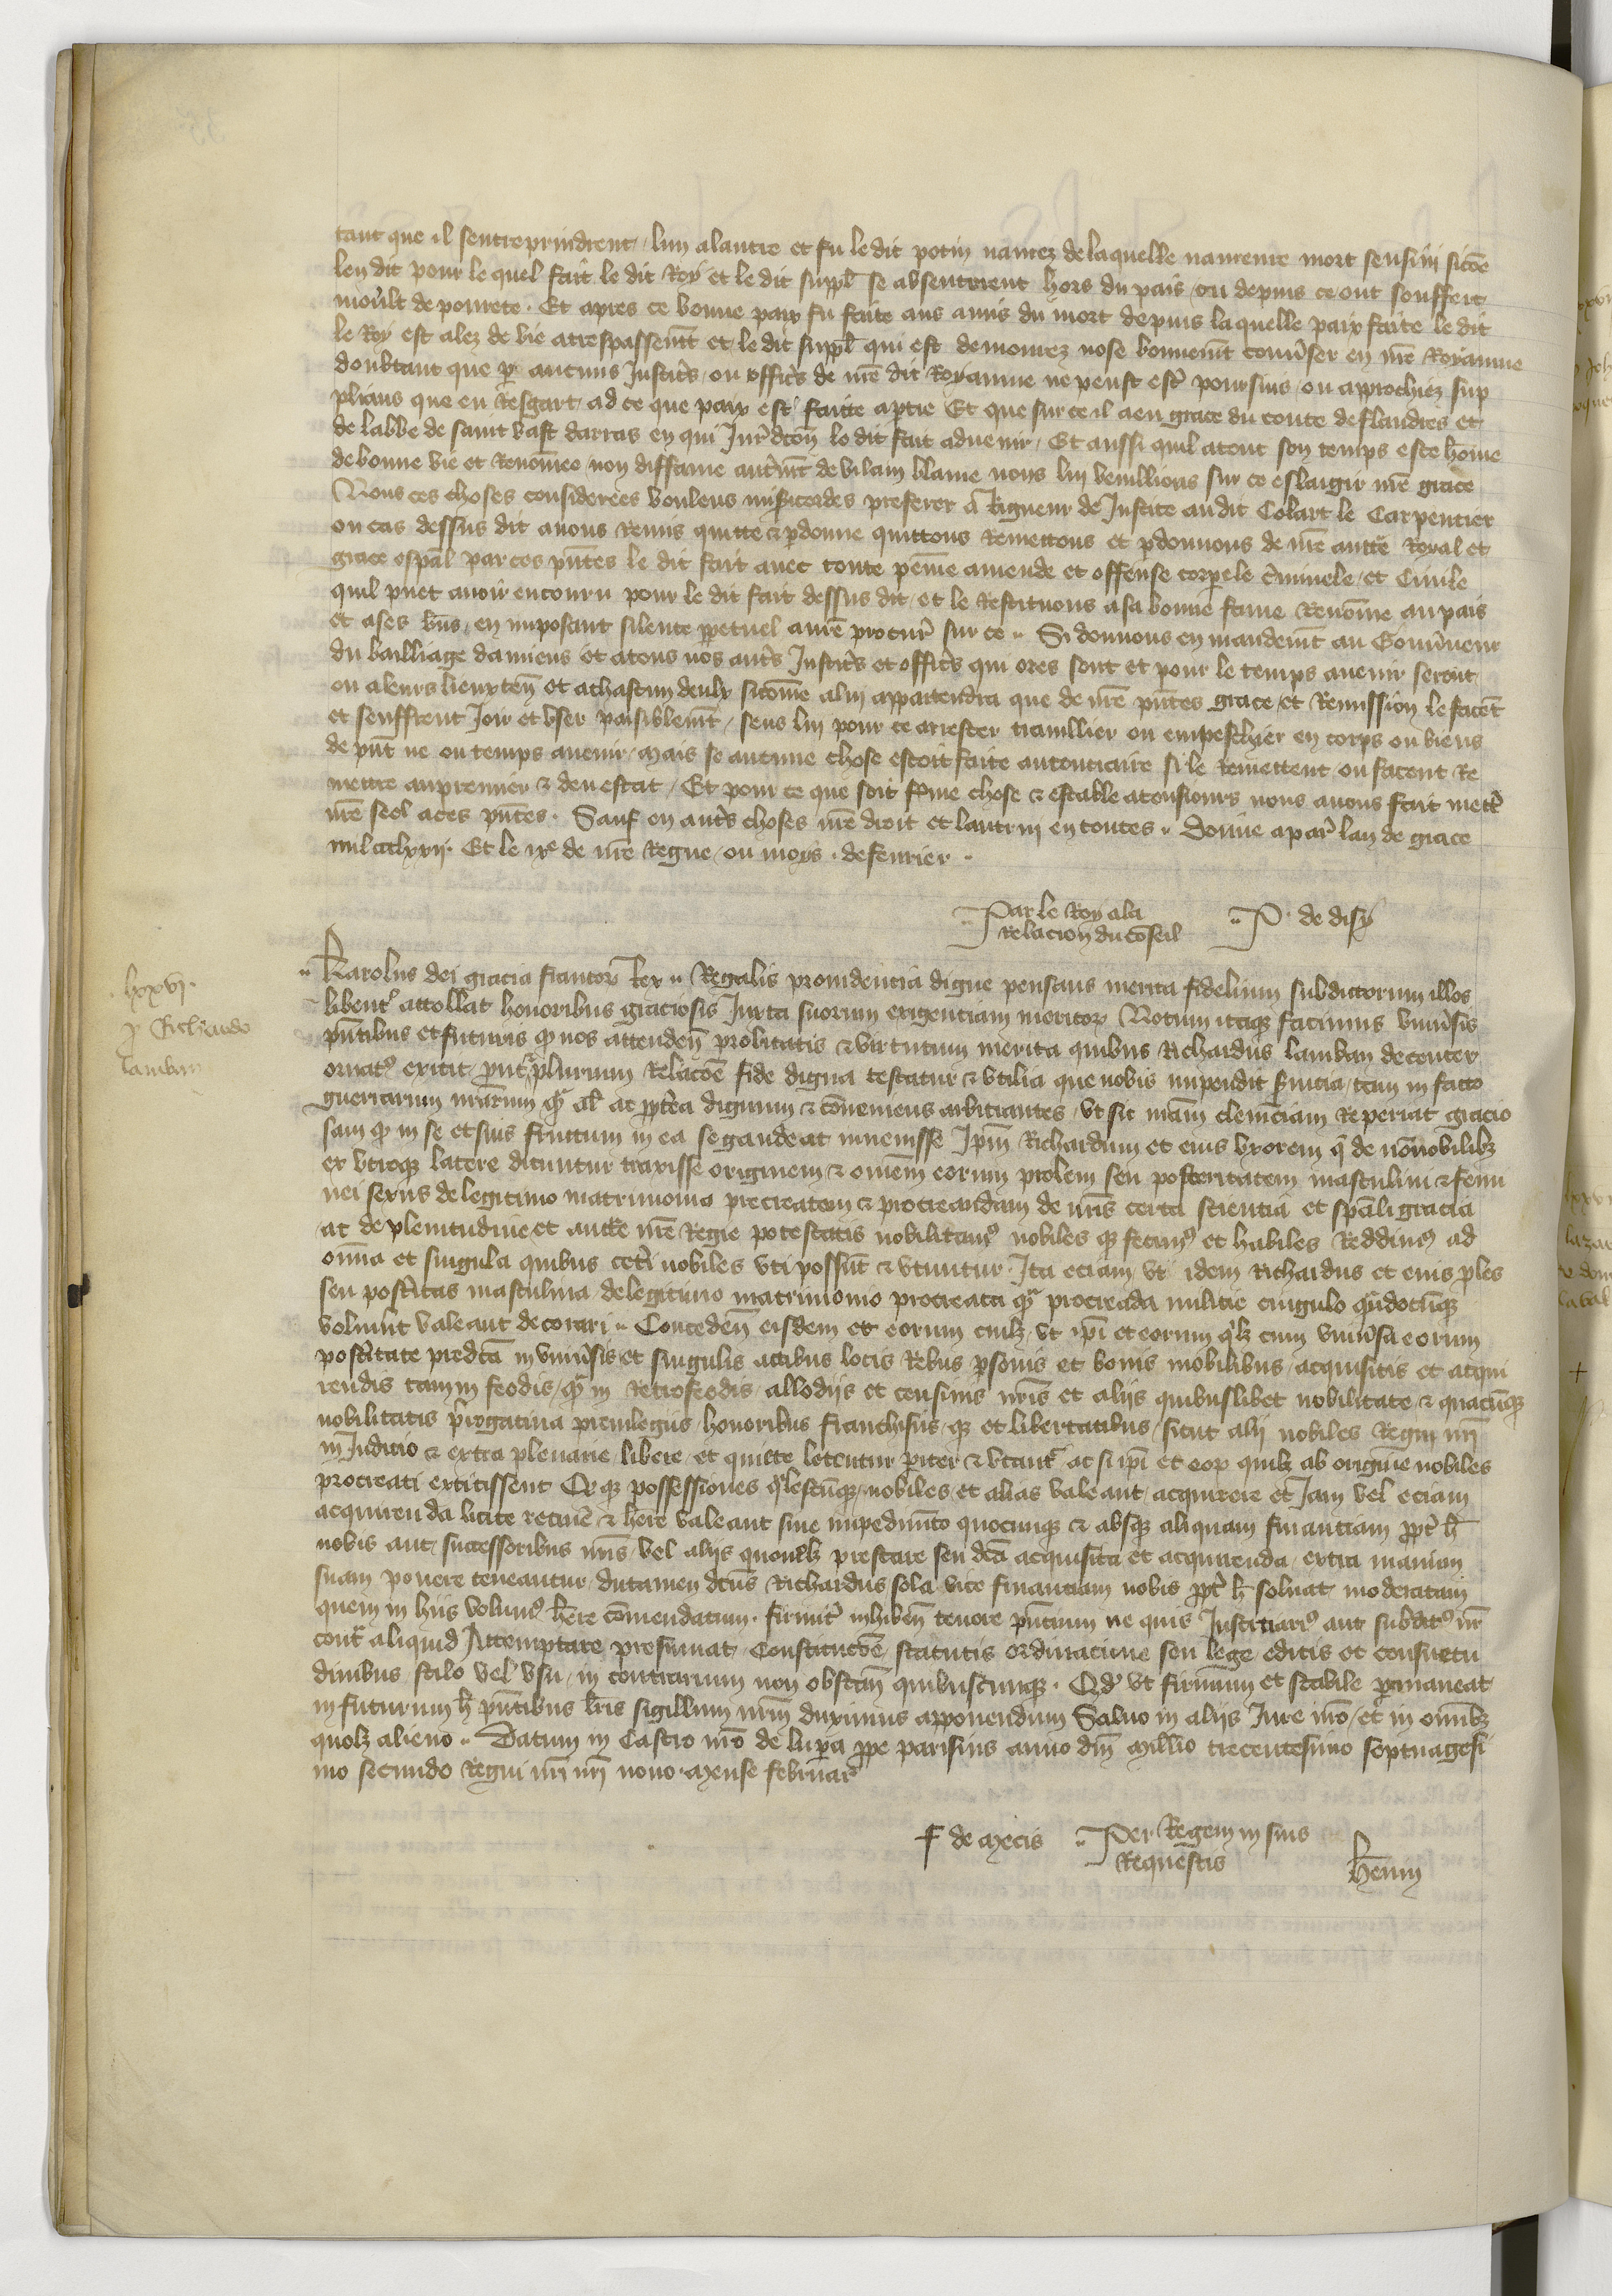 tant que il sentreprindrent lun alautre et fu ledit potin navrez de laquelle navreure mort sensuÿ sicōe
len dit pour le quel fait le dit Roy et le dit suppl̄ se absenterent hors du pais ou depuis ce ont souffert
moult de povrete . Et apres ce bonne paix fu faite aus amis du mort depuis laquelle paix faite le dit
le Roy est alez de vie atrespassem̄t et le dit suppl̄ qui est demourez nose bonnem̄t conv̄ser en nr̄e Royaume
doubtant que ꝑ aucuns Justic̄s ou offic̄s de nr̄e dit Royaume ne peust estr̄ poursuis ou approchiez sup
plians que en Resgart ad ce que paix est faitte aptie Et que sur ce il a eu grace du conte de flandres et
de labbe de saint vast darras en qui Jur̄dicōn le dit fait advenir / Et aussi quil atout son temps este hōme
de bonne vie et Renōmee non diffame autrem̄t de vilain blame nous lui veuillions sur ce eslargir nr̄e grace
Nous ces choses considerees voulens misericordes preferer a Rigueur de Justice audit Colart le Carpentier
ou cas dessus dit avons Remis quitte & ꝑdonne quittons Remettons et ꝑdonnons de nr̄e auctē Royal et
grace esp̄al par ces p̄ntes le dit fait avec toute peine amende et offense corporele cīminele et Civile
quil puet avoir encouru pour le dit fait dessus dit et le Restituons a sa bonne fame Renōmee au pais
et ases b̄ns en imposant silence ꝑpetuel anr̄e procur̄ sur ce .. Si donnons en mandem̄t au Gouv̄neur
du bailliage damiens et atous nos autr̄s Justic̄s et offic̄s qui ores sont et pour le temps avenir seront
ou aleurs lieuxten̄ et achascun deulx sicōme alui appartendra que de nr̄e p̄ntes grace et Remission le facēt
et seuffrent Joir et user paisiblem̄t / sens lui pour ce arrester travillier ou empeschier en corps ou biens
de p̄nt ne ou temps avenir / Mais se aucune chose estoit faite aucontraire si le Remettent ou facent Re
mettre aupremier & deu estat / Et pour ce que soit ferme chose & estable atousiours nous avons fait mettr̄
nr̄e seel aces p̄ntes . Sauf en autr̄s choses nr̄e droit et lautruy en toutes .. Donne apar̄ lan de grace
mil ccclxxij . Et le ixe de nr̄e Regne / ou moys . de fevrier .
Par le Roy ala
Relacion du cōseil .. P . de disy
. lxxvj .
ꝓ Richardo
lamban
.. Karolus dei gracia francoꝝ Rex .. Regalis providencia digne pensans merita fidelium subdictorum illos
libent̄ attollat honoribus graciosis Juxta suorum exigentiam meritoꝝ Notum itaqꝫ facimus univ̄sis
p̄ntibus et futuris qꝫ nos attenden̄ probitatis & virtutum merita quibus Richardus lamban decenter
ornatꝰ exstit ꝓut plurium Relacōe fide digna testatur & utilia que nobis impendit ẜvitia tam in facto
guerrarum nr̄arum qꝫ al̄ ac ꝓpt̄ea dignum & cōveniens arbitrantes ut sic nr̄am clemēciam Reperiat gracio
sam qꝫ in se et suis fructum in ea se gaudeat invenisse Ip̄m Richardum et eius uxorem q̄ de nōnobilibꝫ
ex utroqꝫ latere dicuntur traxisse originem & om̄em eorum prolem seu posteritatem masculini & femi
nei sexus de legitimo matrimonio precreatam & procreandam de nr̄is certa scientia et sp̄ali gracia
ac de plenitudine et auctē nr̄e Regie potestatis nobilitamꝰ nobiles qꝫ fecimꝰ et habiles Reddimꝰ ad
om̄ia et singula quibus cetī nobiles uti possūt & utuntur . Ita eciam ut idem Richardus et eius ꝓles
seu post̄itas masculina de legitimo matrimonio procreata q̄ procreāda militie cingulo qūdocūqꝫ
voluīnt valeant decorari .. Conceden̄ eisdem et eorum cuilꝫ ut ip̄i et eorum q̄lꝫ cum univ̄sa eorum
post̄itate predc̄a in univ̄sis et singulis actibus locis Rebus ꝑsonis et bonis mobilibus acquisitis et acqui
rendis tam in feodis qꝫ in Retrofeodis allodijs et censivis nr̄is et alijs quibuslibet nobilitate & quacūqꝫ
nobilitatis p̄rogativa previlegiis honoribus franchisiis qꝫ et libertatibus sicut alij nobiles Regni nr̄i
in Judicio & extra plenarie libere et quitte letentur ꝑiter & utant̄ ac si ip̄i et eoꝝ quilꝫ ab origine nobiles
procreati extitissent Et qꝫ possessiones q̄lescūqꝫ nobiles et alias valeant acquirere et Jam vel eciam
acquirenda licite retinēe & hēre valeant sine impedimēto quocunqꝫ & absqꝫ aliquam financiam ꝓpt̄ h̄
nobis aut successoribus nr̄is vel alijs quovīslꝫ prestare seu dc̄a acquisita et acquirenda extra manum
suam ponere teneantur dutamen dc̄us Richardus sola vice financiam nobis ꝓpt̄ h̄ solvat moderatam
quem in hiis volumꝰ hēre cōmendatum . firmit̄ inhiben̄ tenore p̄ntium ne quis Justiciariꝰ aut subditꝰ nr̄
cont̄ aliquid Attemptare presumat Constitucōe statutis ordinacione seu lege editis et consuetu
dinibus stilo vel usu in contrarium non obstan̄ quibuscunqꝫ . Qꝫ ut firmum et stabile ꝑmaneat
in futurum h̄ p̄ntibus lr̄is sigillum nr̄m duximus apponendum Salvo in alijs Jure nr̄o et in omībꝫ
quolꝫ alieno .. Datum in Castro nr̄o de luꝑa ꝓpe parisius anno dn̄i Millio trecentesimo septuagesi
mo secundo Regni nr̄i nr̄i nono . Mense februar̄
F de Mecis .. Per Regem in suis
Requestis Henin